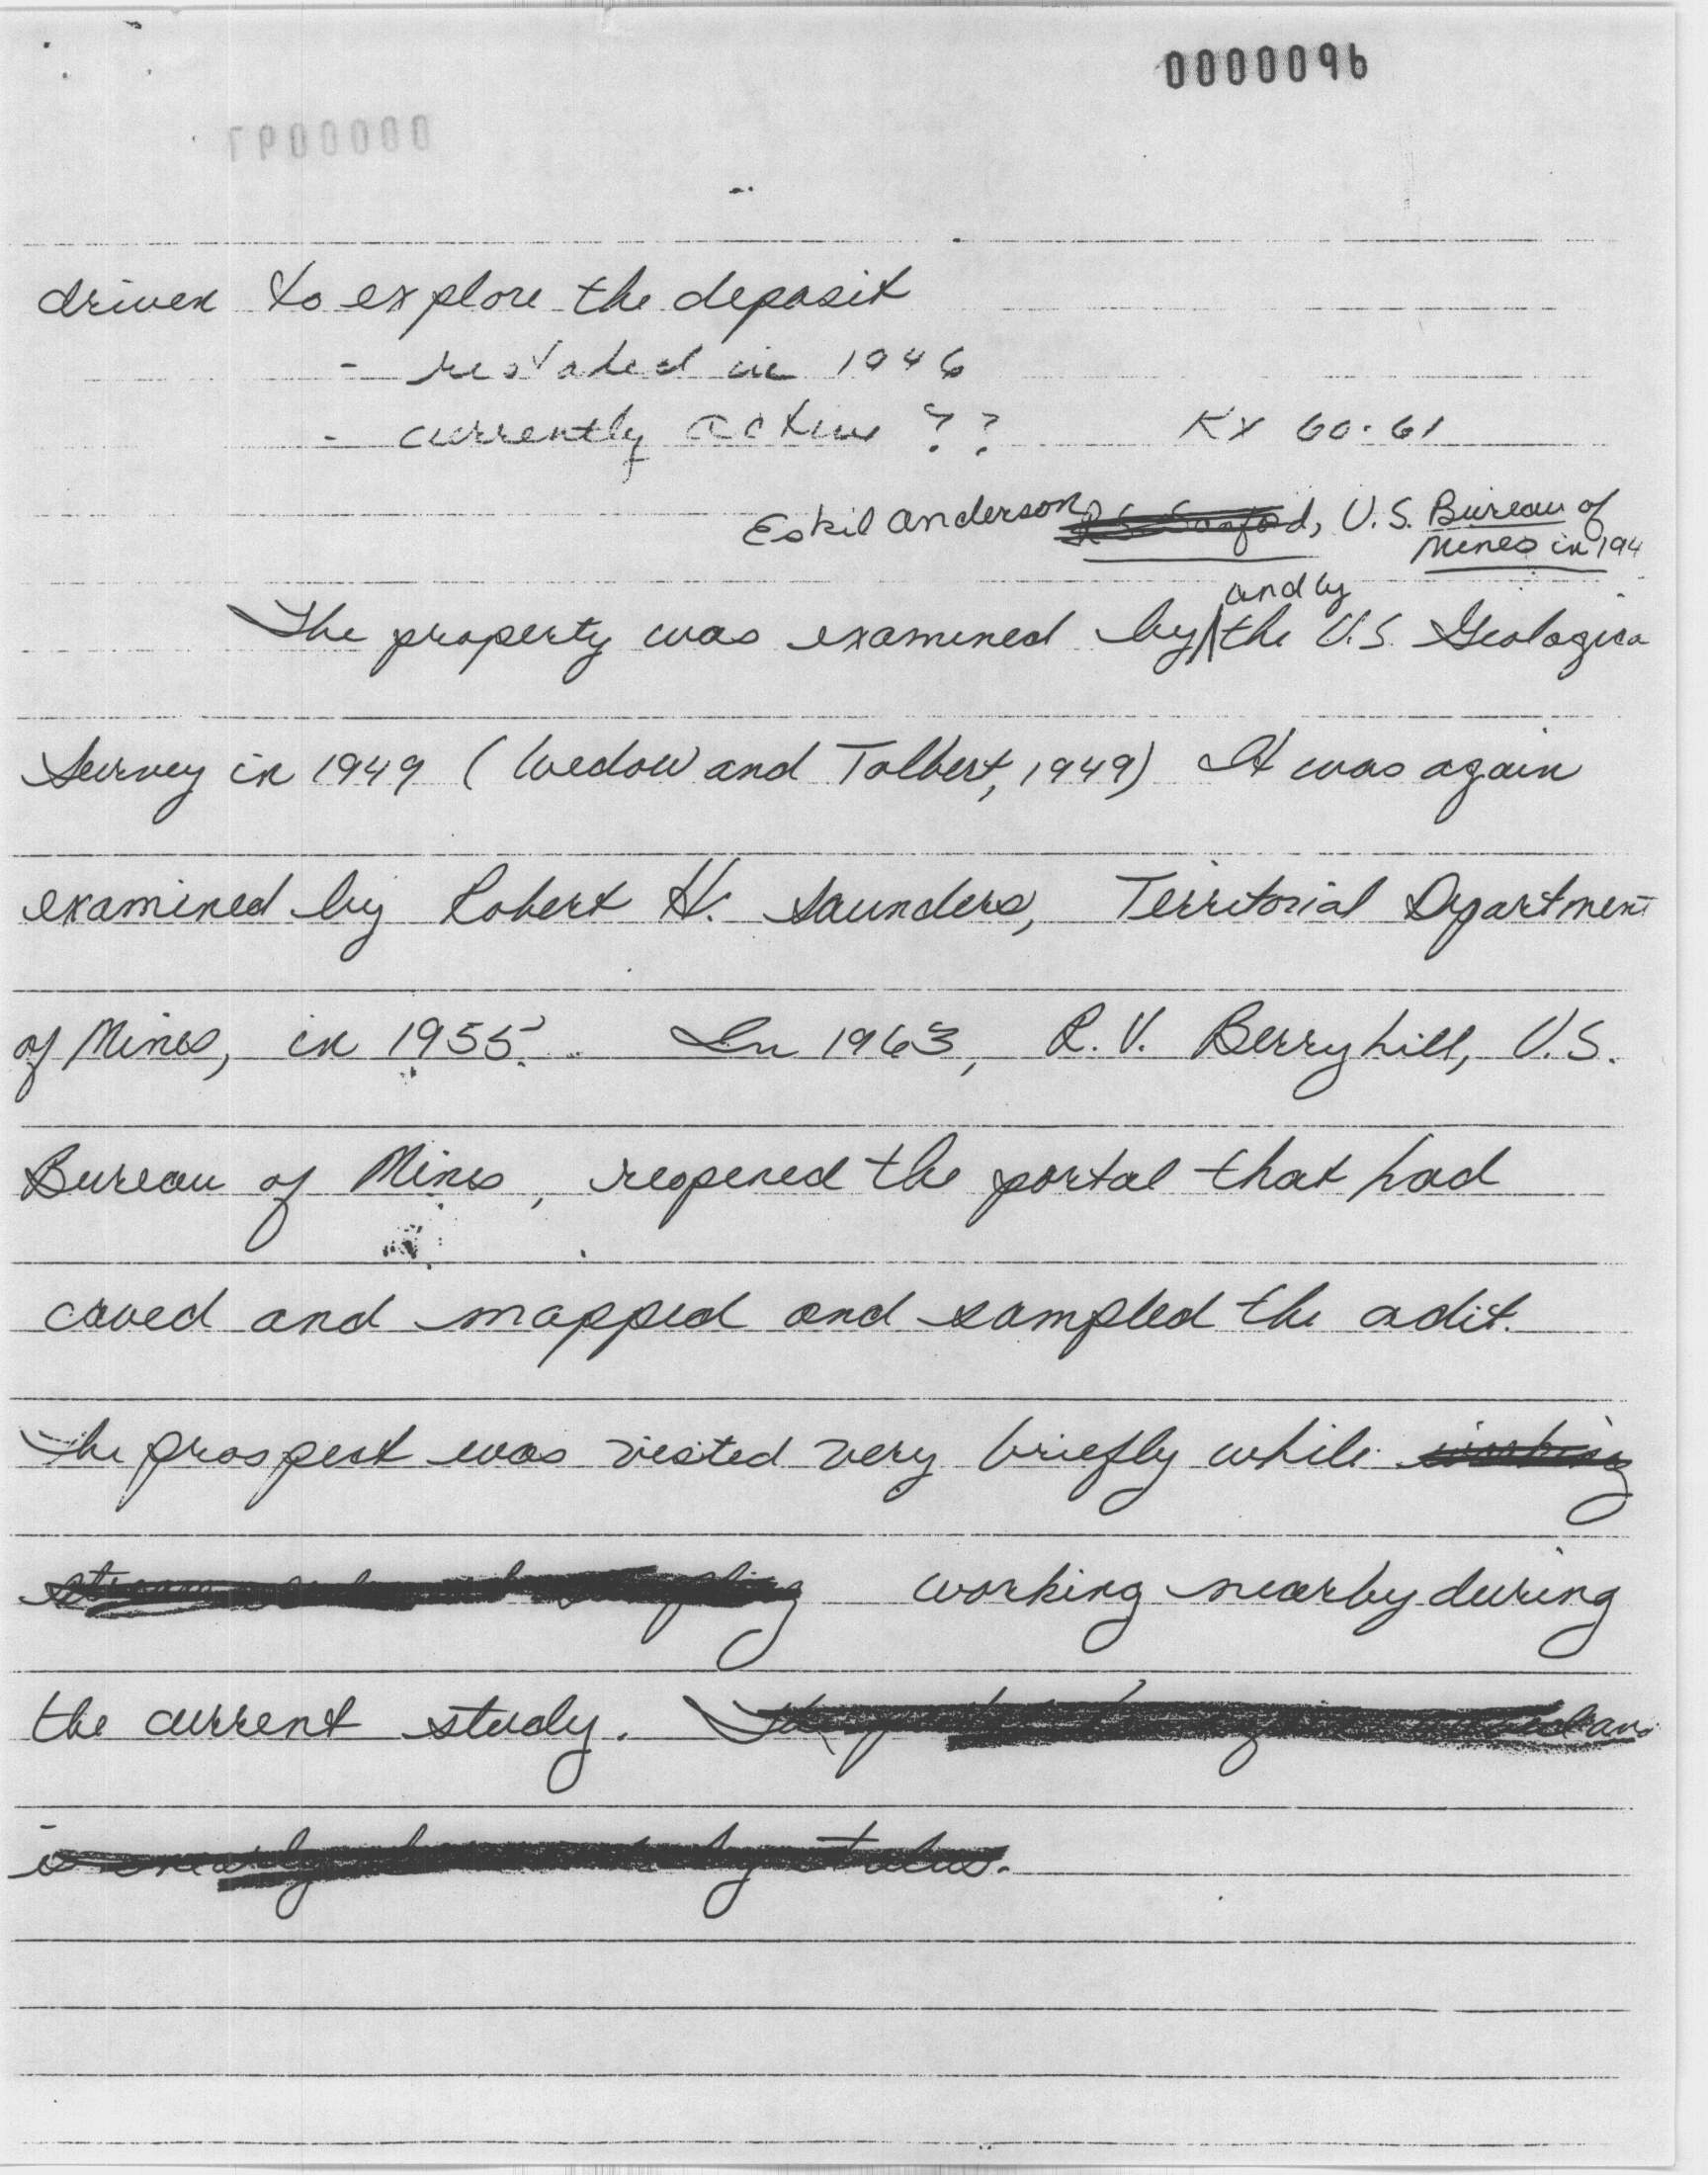 0000096
driven to explore the deposit
- restaked in 1946
- currently active ?? KX 60-61
Eskil Anderson R S Sanford, U.S. Bureau of
Mines in 194
and by
The property was examined by the U.S. Geologica
Survey in 1949 (Wedow and Tolbert, 1949) It was again
examined by Robert H. Saunders, Territorial Department
of Mines, in 1955. In 1963, R.V. Berryhill, U.S.
Bureau of Mines, reopened the portal that had
caved and mapped and sampled the adit.
The prospect was visted very briefly while working
working nearby during
the current study. The
is nearly by talus.